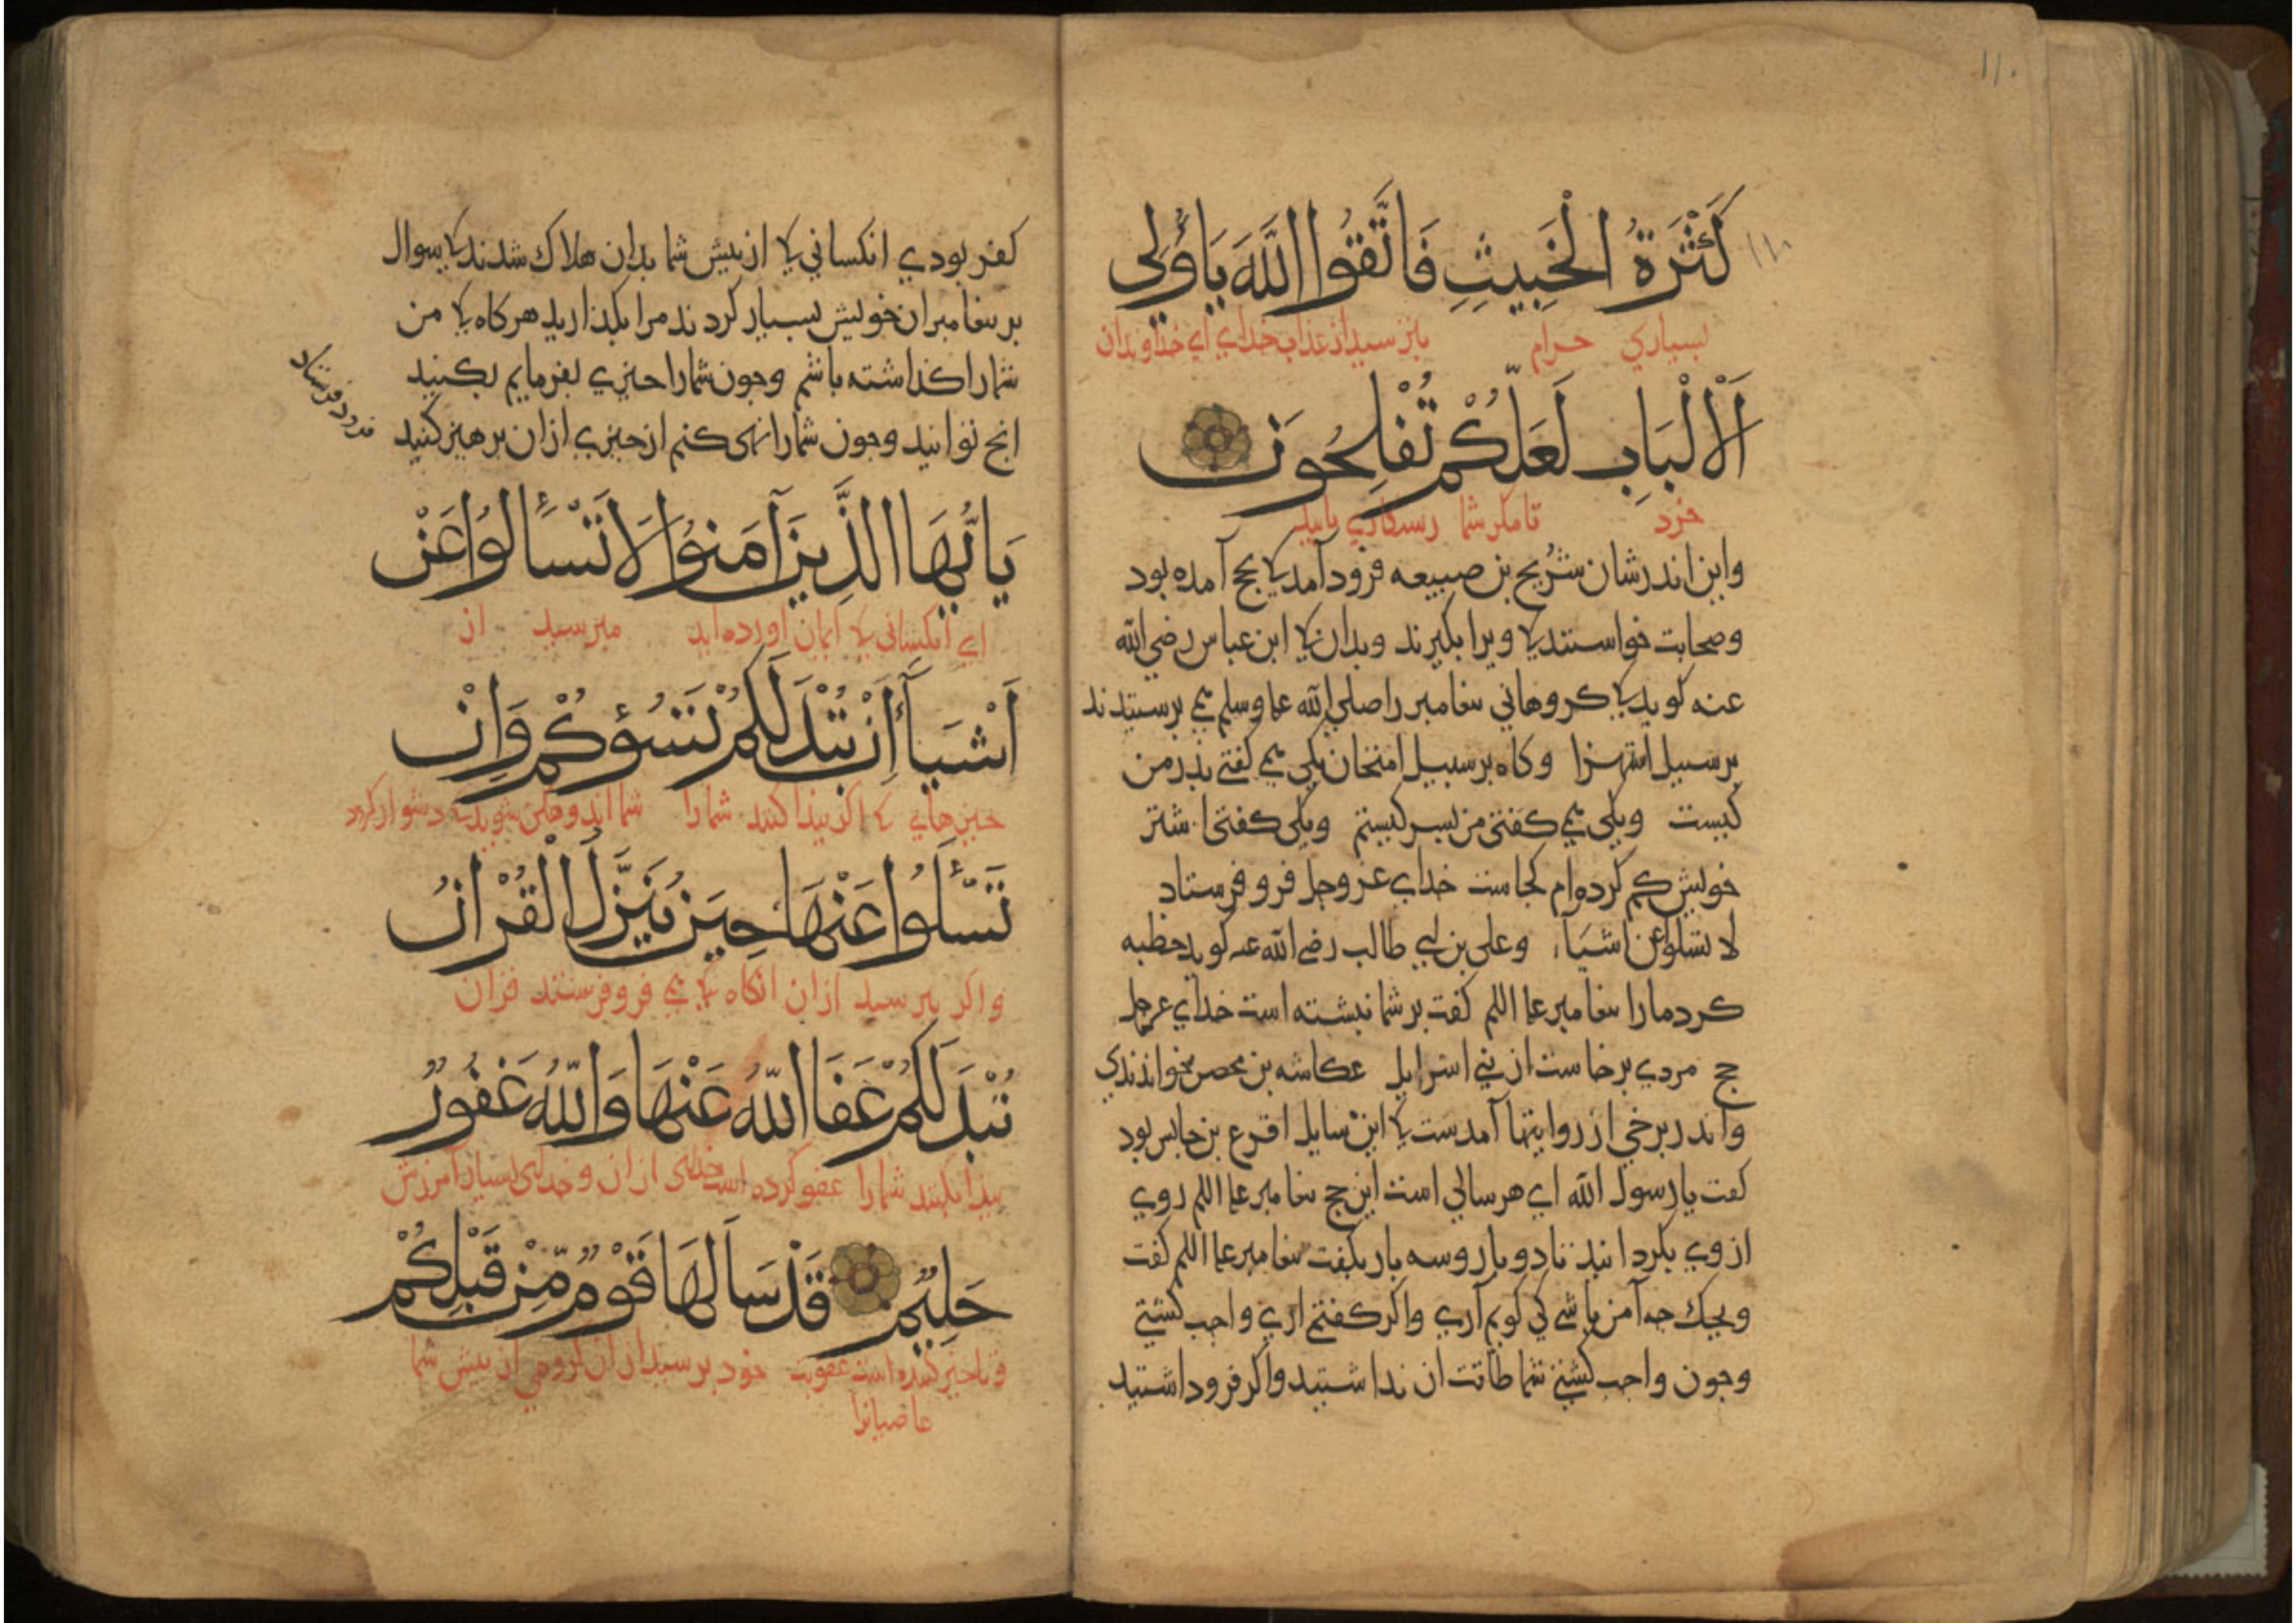 ۱۱۰
كَثْرَةُ الْخَبِيثِ فَاتَّقُوا اللَّهَ يَا أُولِي
بسیاري حرام بترسید از عذاب خداي اي خداوندان
اَلْأَلْبَابِ لَعَلَّكُمْ تُفْلِحُونَ
خرد تا مکر شما رستکاري یابید
واین اندر شان شُریح بن ضبیعه فرود آمد کی بحج آمده بود
وصحابت خواستند کی ویرا بکیرند وبدان کی ابن عباس رضي الله
عنه کوید کی کروهاني بیغامبر را صلي الله علیه وسلم می برسیدند
بر سبیل استهزا وکاه بر سبیل امتحان یکي می کفتي بدر من
کیست ویکي می کفتي من بسر کیستم ویکي کفتي اشتر
خویش کم کرده ام کجاست خداي عز وجل فرو فرستاد
لا تسئلوا عن اشیاء وعلي بن ابي طالب رضي الله عنه کوید خطبه
کرد ما را بیغامبر علیه السلم کفت بر شما نبشته است خداي عز وجل
حج مردي برخاست از بني اسرایل عکاشه بن محصن خواندندي
واندر برخي از روایتها آمدست کی این سایل اقرع بن حابس بود
کفت یا رسول الله اي هر سالي است این حج بیغامبر علیه السلم روي
از وي بکردانید تا دو بار وسه بار بکفت بیغامبر علیه السلم کفت
ویحک جه آمن باشي کي کویم آري واکر کفتمي اري واجب کشتي
وجون واجب کشتي شما طاقت ان نداشتید واکر فرو داشتید
کفر بودي انکساني کی از بیش شما بدان هلاک شدند کی سوال
بر بیغامبران خویش بسیار کردند مرا بکذارید هر کاه کی من
شما را کذاشته باشم وجون شما را جیزي بفرمایم بکنید
انج توانید وجون شما را نهي کنم از جیزي ازان برهیز کنید
فرود فرستاد
يَا أَيُّهَا الَّذِينَ آمَنُوا لَا تَسْأَلُوا عَنْ
اي انکساني کی ایمان آورده اید مبرسید از
أَشْيَاءَ إِنْ تُبْدَ لَكُمْ تَسُؤْكُمْ وَإِنْ
جیزهاي کی اکر بیدا کنند شما را شما اندوهکن شوید دشوار کردد
تَسْئَلُوا عَنْهَا حِينَ يُنَزَّلُ الْقُرْانُ
واکر ببرسید ازان انکاه کی می فرو فرستند قران
تُبْدَ لَكُمْ عَفَا اللَّهُ عَنْهَا وَاللَّهُ غَفُورٌ
بیدا بکنند شما را عفو کرده است خداي ازان وخداي بسیار آمرزش
حَلِيمٌ قَدْ سَأَلَهَا قَوْمٌ مِّنْ قَبْلِكُمْ
وتاخیر کننده است عقوبت خود برسید ازان کروهي از بیش شما
عاصیانرا